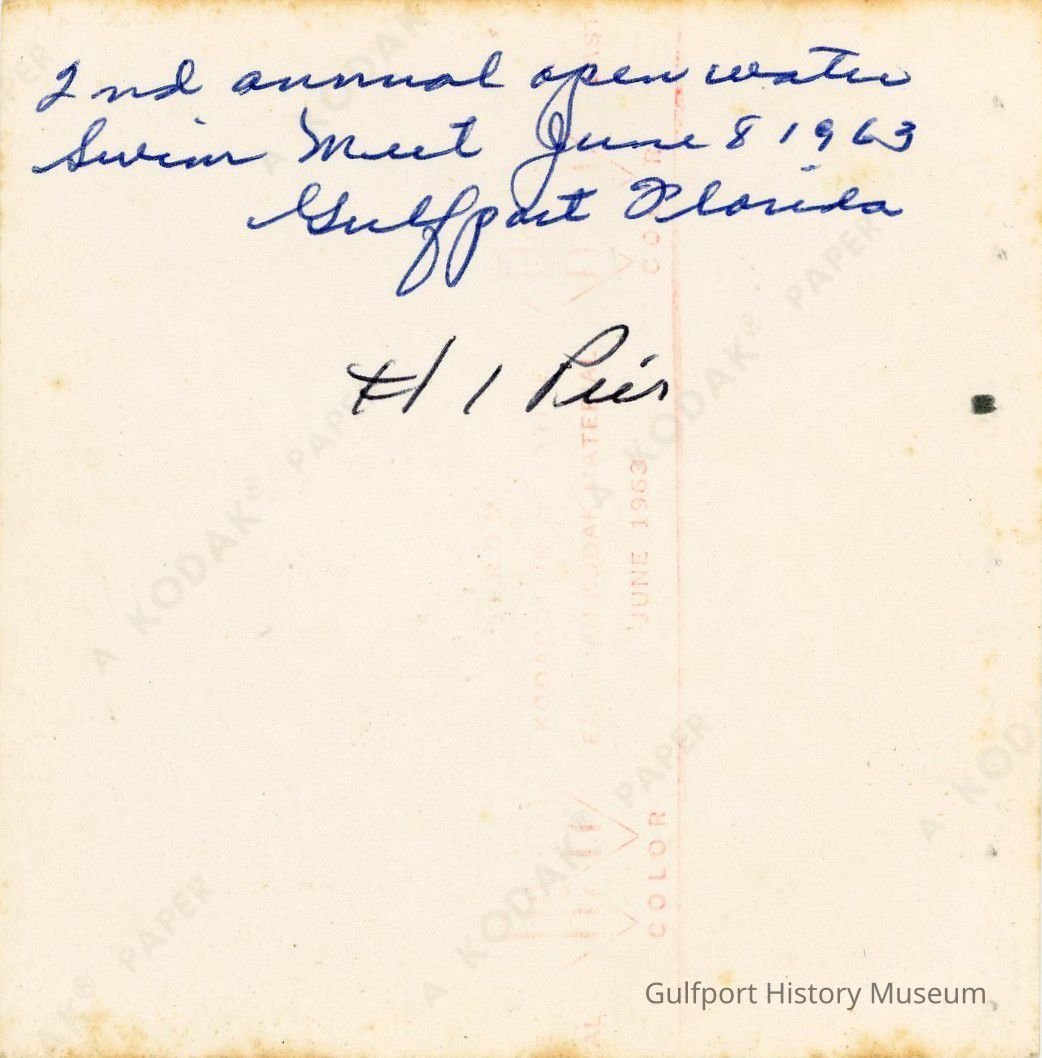 2nd annual open water
Swim Meet June 8 1963
Gulfport Florida
# 1 Pier
A KODAK® PAPER
A KODAK® PAPER
A KODAK® PAPER
JUNE 1963
COLOR
COLOR
Gulfport History Museum